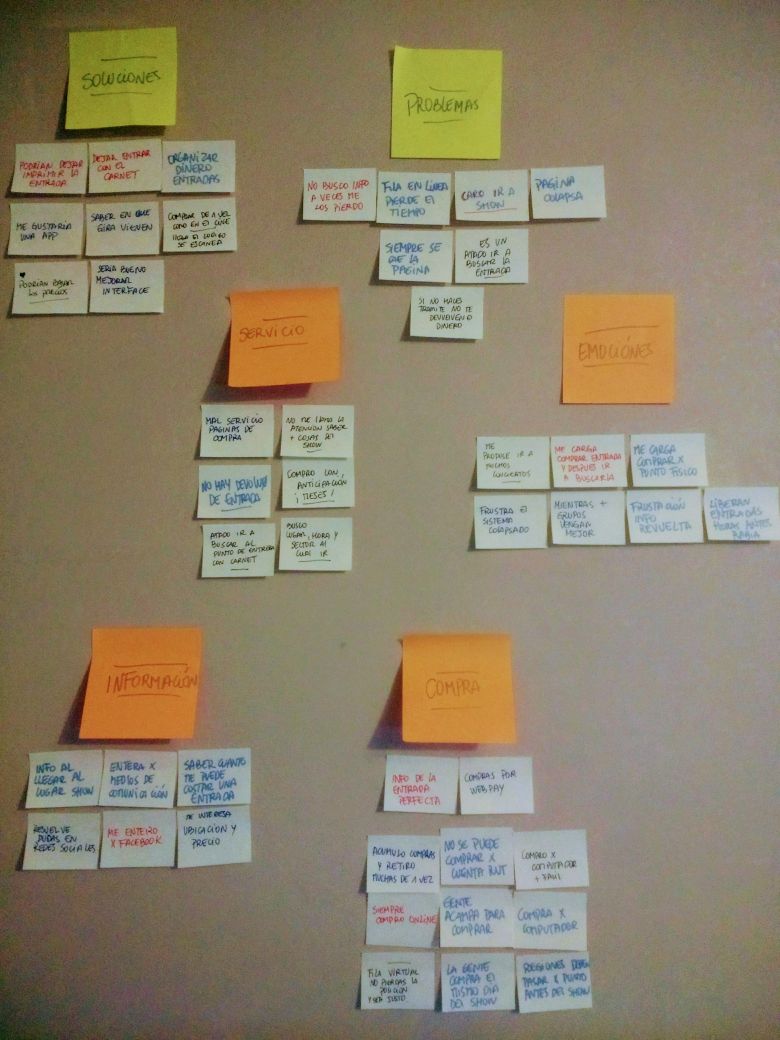 SOLUCIONES
PODRIAN DEJAR
IMPRIMIR LA
ENTRADA
DEJAR ENTRAR
CON EL
CARNET
ORGANIZAR
DINERO
ENTRADAS
ME GUSTARIA
UNA APP
SABER EN QUE
GIRA VIENEN
COMPRAR DE 1 VEZ
COMO EN EL CINE
EL CODIGO
SE ESCANEA
PODRIAN BAJAR
LOS PRECIOS
SERIA BUENO
MEJORAR
INTERFACE
PROBLEMAS
NO BUSCO INFO
A VECES ME
LOS PIERDO
FILA EN LINEA
PIERDE EL
TIEMPO
CARO IR A
SHOW
PAGINA
COLAPSA
SIEMPRE SE
CAE LA
PAGINA
ES UN
ATADO IR A
BUSCAR LA
ENTRADA
SI NO HACES
TRAMITE NO TE
DEVUELVEN
DINERO
SERVICIO
MAL SERVICIO
PAGINAS DE
COMPRA
NO ME LLAMO LA
ATENCION SABER
+ COSAS DEL
SHOW
NO HAY DEVOLUCION
DE ENTRADA
COMPRO CON
ANTICIPACIÓN
¡MESES!
ATADO IR A
BUSCAR AL
PUNTO DE ENTREGA
CON CARNET
BUSCO
LUGAR, HORA Y
SECTOR AL
CUAL IR
EMOCIÓNES
ME
PRODUSE IR A
MUCHOS
CONCIERTOS
ME CARGA
COMPRAR ENTRADA
Y DESPUES IR
A BUSCARLA
ME CARGA
COMPRAR X
PUNTO FISICO
FRUSTRA EL
SISTEMA
COLAPSADO
MIENTRAS +
GRUPOS
VENGAN
MEJOR
FRUSTACIÓN
INFO
REVUELTA
LIBERAN
ENTRADAS
HORAS ANTES
RABIA
INFORMACIÓN
INFO AL
LLEGAR AL
LUGAR SHOW
ENTERA X
MEDIOS DE
COMUNICACIÓN
SABER CUANTO
ME PUEDE
COSTAR UNA
ENTRADA
RESUELVE
DUDAS EN
REDES SOCIALES
ME ENTERO
X FACEBOOK
ME INTERESA
UBICACION Y
PRECIO
COMPRA
INFO DE LA
ENTRADA
PERFECTA
COMPRAS POR
WEB PAY
ACUMULO COMPRAS
Y RETIRO
MUCHAS DE 1 VEZ
NO SE PUEDE
COMPRAR X
CUENTA RUT
COMPRO X
COMPUTADOR
+ FACIL
SIEMPRE
COMPRO ONLINE
GENTE
ACAMPA PARA
COMPRAR
COMPRA X
COMPUTADOR
FILA VIRTUAL
NO PIERDAS LA
POSICIÓN
Y SEA JUSTO
LA GENTE
COMPRA EL
MISMO DIA
DEL SHOW
REGIONES DEBEN
PASAR X PUNTO
ANTES DEL SHOW